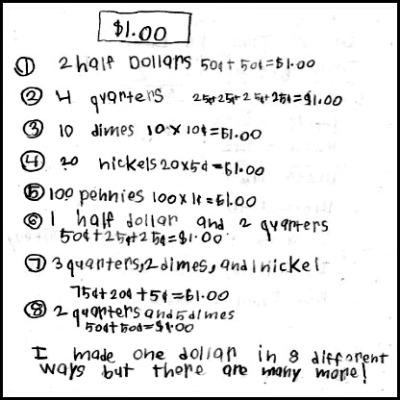 $1.00
① 2 half Dollars 50¢+50¢=$1.00
② 4 quarters 25¢+25¢+25¢+25¢=$1.00
③ 10 dimes 10×10¢=$1.00
④ 20 nickels 20x5¢=$1.00
⑤ 100 pennies 100x1¢=$1.00
⑥ 1 half dollar and 2 quarters
50¢+25¢+25¢=$1.00
⑦ 3 quarters, 2 dimes, and 1 nickel
75¢+20¢+5¢=$1.00
⑧ 2 quarters and 5 dimes
50¢+50¢=$1.00
I made one dollar in 8 different
ways but there are many more!